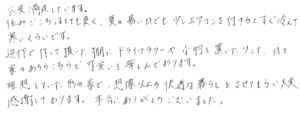 大変満足しています。
住みごこちはとても良く、夏の暑い日でも少しエアコンを付けるとすぐ冷えて
寒いくらいです。
造作で作って頂いた棚にドライフラワーや小物を置いたりして、日々
家のあちらこちらで可愛いを楽しんでおります。
理想していた形の家で、想像以上の快適な暮らしをさせてもらい大変
感謝しております。本当にありがとうございました。